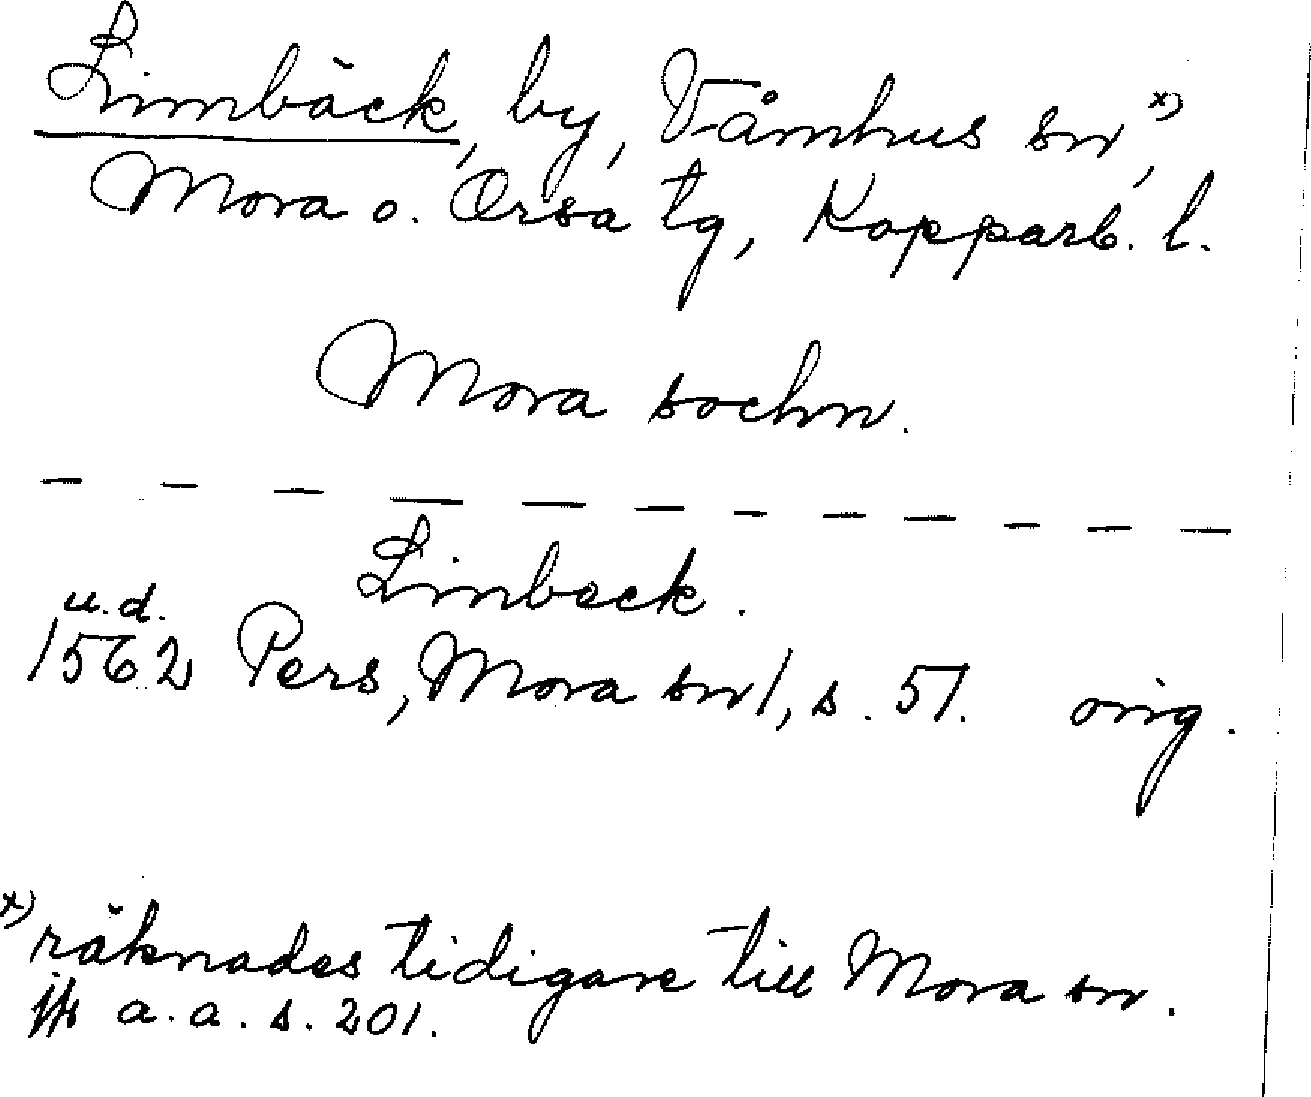 Limbäck, by, Våmhus sn,x)
Mora o. Orsa tg, Kopparb. l.
Mora sochn.
Limbeck.
u.d.
1562 Pers, Mora sn 1, s. 51. orig.
x) räknades tidigare till Mora sn.
jfr a.a. s. 201.